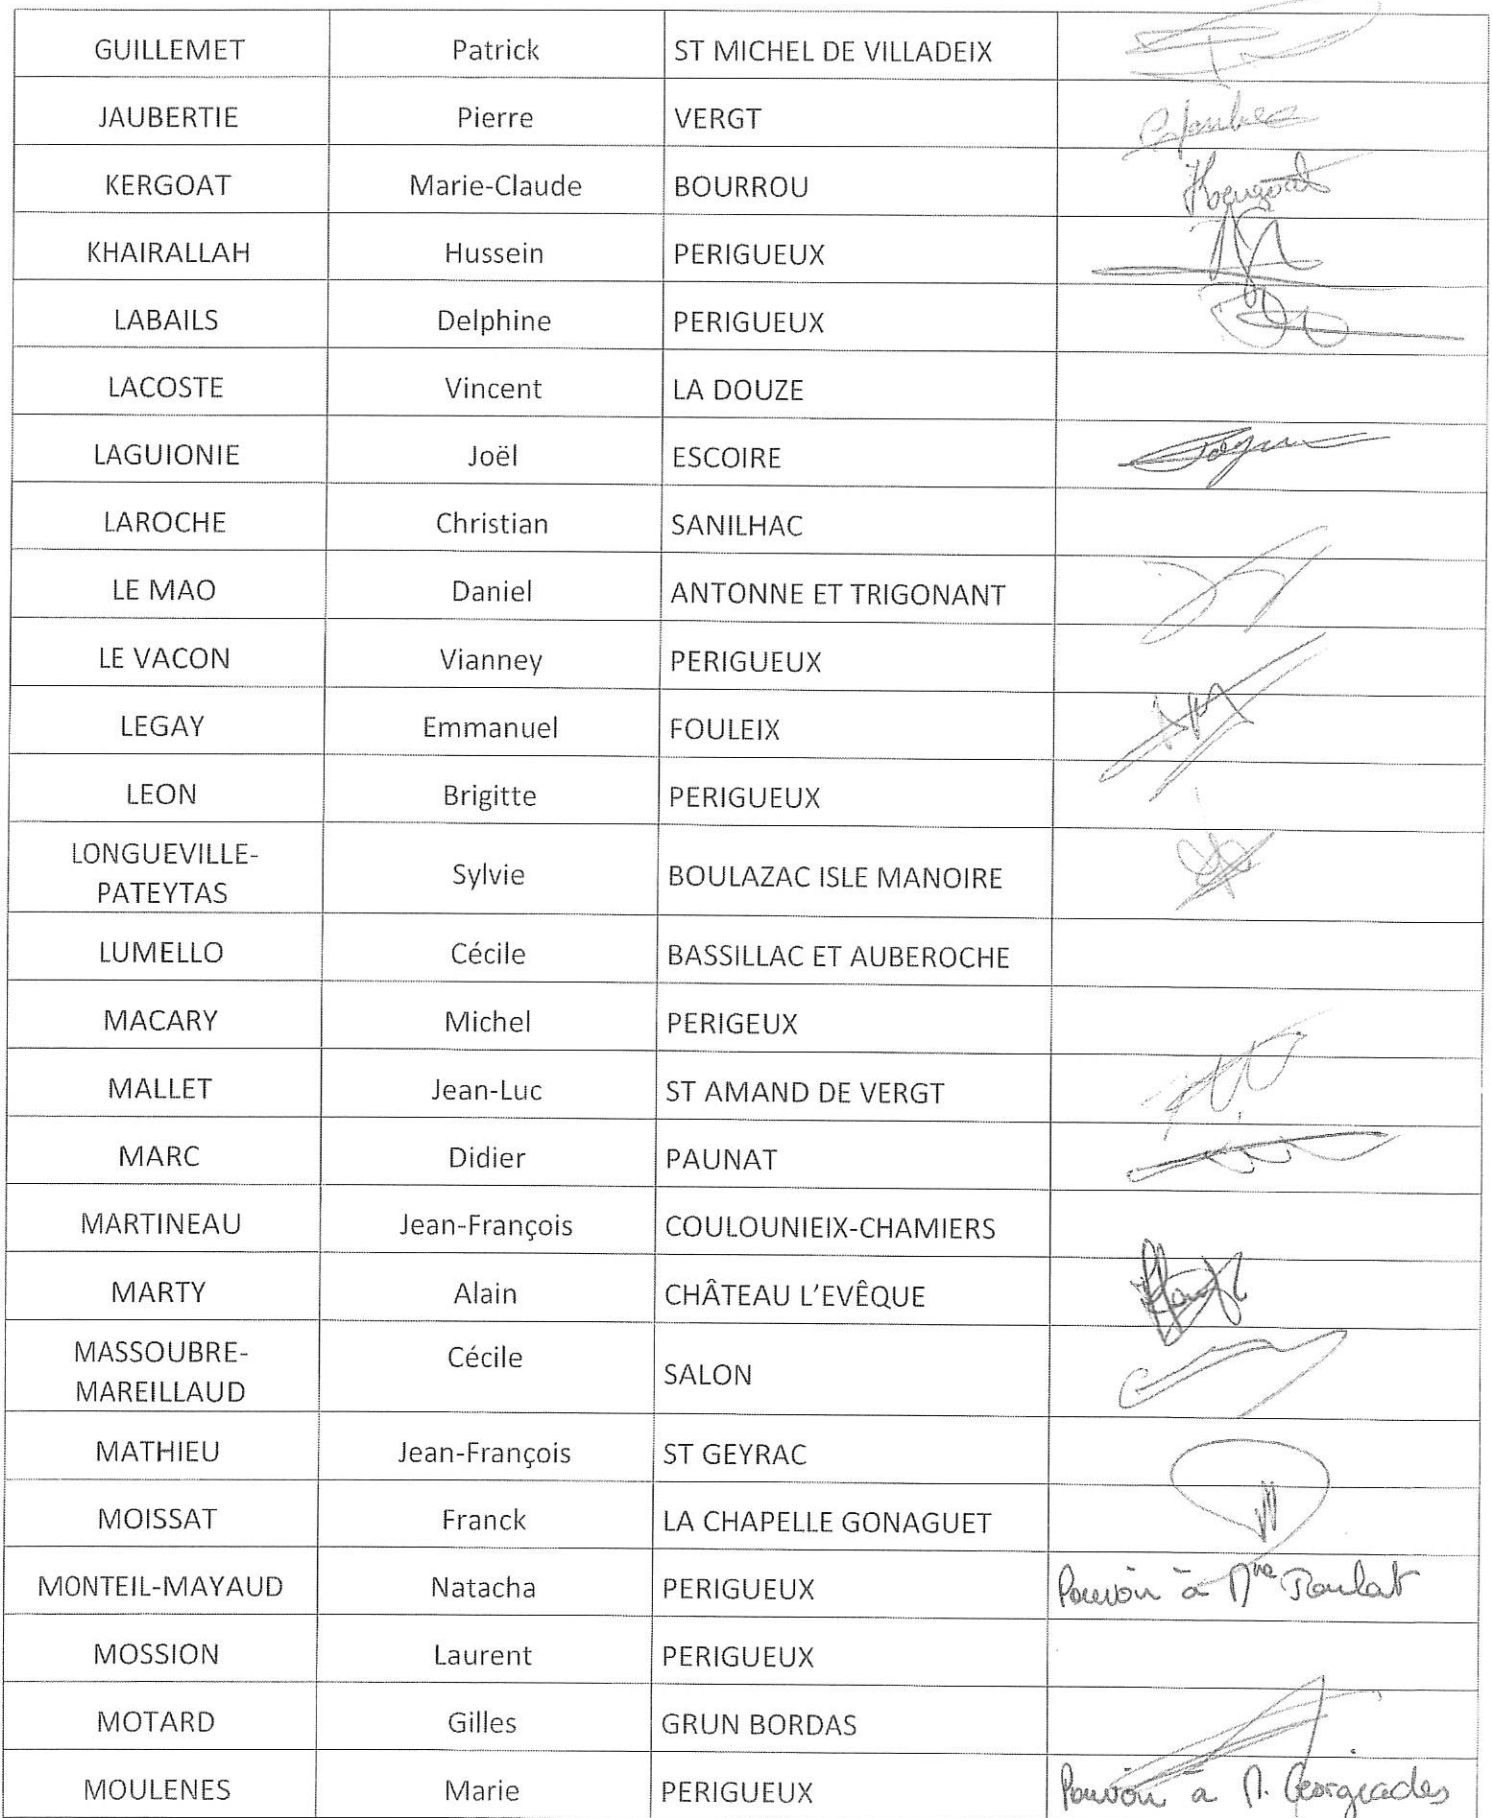 GUILLEMET Patrick ST MICHEL DE VILLADEIX
JAUBERTIE Pierre VERGT
KERGOAT Marie-Claude BOURROU
KHAIRALLAH Hussein PERIGUEUX
LABAILS Delphine PERIGUEUX
LACOSTE Vincent LA DOUZE
LAGUIONIE Joël ESCOIRE
LAROCHE Christian SANILHAC
LE MAO Daniel ANTONNE ET TRIGONANT
LE VACON Vianney PERIGUEUX
LEGAY Emmanuel FOULEIX
LEON Brigitte PERIGUEUX
LONGUEVILLE-
PATEYTAS Sylvie BOULAZAC ISLE MANOIRE
LUMELLO Cécile BASSILLAC ET AUBEROCHE
MACARY Michel PERIGEUX
MALLET Jean-Luc ST AMAND DE VERGT
MARC Didier PAUNAT
MARTINEAU Jean-François COULOUNIEIX-CHAMIERS
MARTY Alain CHÂTEAU L'EVÊQUE
MASSOUBRE-
MAREILLAUD Cécile SALON
MATHIEU Jean-François ST GEYRAC
MOISSAT Franck LA CHAPELLE GONAGUET
MONTEIL-MAYAUD Natacha PERIGUEUX Pouvoir à Mme
MOSSION Laurent PERIGUEUX
MOTARD Gilles GRUN BORDAS
MOULENES Marie PERIGUEUX Pouvoir à M. Georgiades